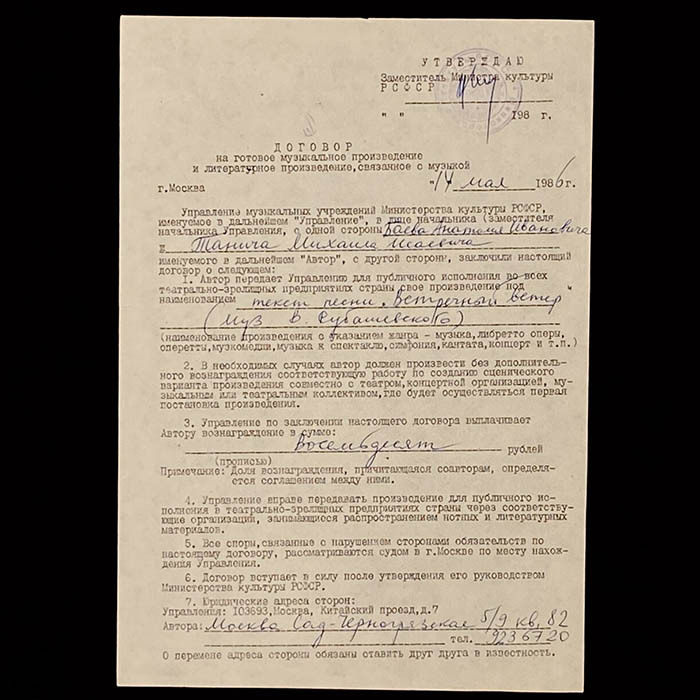 УТВЕРЖДАЮ
Заместитель Министра культуры
РСФСР
" " 198 г.
ДОГОВОР
на готовое музыкальное произведение
и литературное произведение, связанное с музыкой
г.Москва "14 мая 1986 г.
Управление музыкальных учреждений Министерства культуры РСФСР,
именуемое в дальнейшем "Управление", в лице начальника (заместителя
начальника Управления, с одной стороны Баева Анатолия Ивановича
и Танича Михаила Исаевича
именуемого в дальнейшем "Автор", с другой сторони, заключили настоящий
договор о следующем:
1. Автор передает Управлению для публичного исполнения во всех
театрально-зрелищных предприятиях страны свое произведение под
наименованием текст песни "Встречный ветер
(муз В. Рубашевского)
(наименование произведения с указанием жанра - музыка, либретто оперы,
оперетты, музкомедии, музыка к спектаклю, симфония, кантата, концерт и т.п.)
2. В необходимых случаях автор должен произвести без дополнитель-
ного вознаграждения соответствующую работу по созданию сценического
варианта произведения совместно с театром, концертной организацией, му-
зыкальным или театральным коллективом, где будет осуществляться первая
постановка произведения.
3. Управление по заключении настоящего договора выплачивает
Автору вознаграждение в сумме:
Восемьдесят рублей
(прописью)
Примечание: Доля вознаграждения, причитающаяся соавторам, определя-
ется соглашением между ними.
4. Управление вправе передавать произведение для публичного ис-
полнения в театрально-зрелищных предприятиях страны через соответству-
ющие организации, занимающиеся распространением нотных и литературных
материалов.
5. Все споры, связанные с нарушением сторонами обязательств по
настоящему договору, рассматриваются судом в г.Москве по месту нахож-
дения Управления.
6. Договор вступает в силу после утверждения его руководством
Министерства культуры РСФСР.
7. Юридические адреса сторон:
Управления: 103693, Москва, Китайский проезд, д.7
Автора: Москва Сад-Черногрязская 5/9 кв. 82
тел. 923 67 20
О перемене адреса стороны обязаны ставить друг друга в известность.